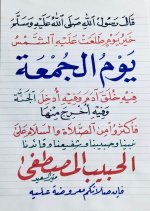 قال رسول الله صلى الله عليه وسلم
خير يوم طلعت عليه الشمس
يوم الجمعة
فيه خلق آدم وفيه أدخل الجنة
وفيه أخرج منها
فأكثروا من الصلاة والسلام على
نبينا وحبيبنا وشفيعنا وقائدنا
الحبيب المصطفى
فإن صلاتكم معروضة عليه